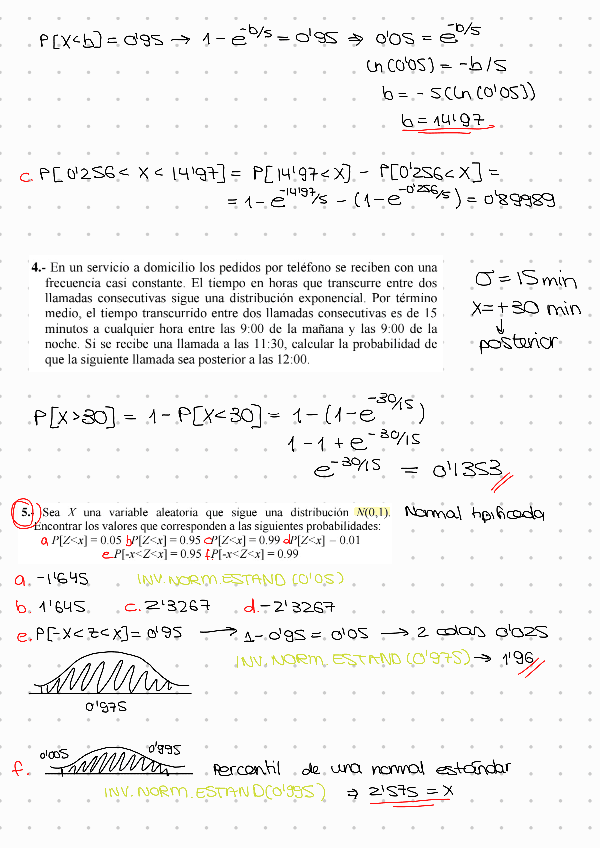 P[X<b] = 0'95 → 1 - e^-b/5 = 0'95 ⇒ 0'05 = e^-b/5
ln(0'05) = -b/5
b = -5(ln(0'05))
b = 14'97
c. P[0'256 < X < 14'97] = P[14'97 < X] - P[0'256 < X] =
= 1 - e^-14'97/5 - (1 - e^-0'256/5) = 0'89989
4.- En un servicio a domicilio los pedidos por teléfono se reciben con una
frecuencia casi constante. El tiempo en horas que transcurre entre dos
llamadas consecutivas sigue una distribución exponencial. Por término
medio, el tiempo transcurrido entre dos llamadas consecutivas es de 15
minutos a cualquier hora entre las 9:00 de la mañana y las 9:00 de la
noche. Si se recibe una llamada a las 11:30, calcular la probabilidad de
que la siguiente llamada sea posterior a las 12:00.
σ = 15 min
X = +30 min
↓
posterior
P[X>30] = 1 - P[X<30] = 1 - (1 - e^-30/15)
1 - 1 + e^-30/15
e^-30/15 = 0'1353
5.- Sea X una variable aleatoria que sigue una distribución N(0,1). Normal tipificada
Encontrar los valores que corresponden a las siguientes probabilidades:
a. P[Z<x] = 0.05 b. P[Z<x] = 0.95 c. P[Z<x] = 0.99 d. P[Z<x] = 0.01
e. P[-x<Z<x] = 0.95 f. P[-x<Z<x] = 0.99
a. -1'645 INV. NORM. ESTAND (0'05)
b. 1'645 c. 2'3267 d. -2'3267
e. P[-X<Z<X] = 0'95 → 1 - 0'95 = 0'05 → 2 colas 0'025
INV. NORM. ESTAND (0'975) → 1'96
0'975
f. 0'005 0'995 Percentil de una normal estándar
INV. NORM. ESTAND (0'995) ⇒ 2'575 = X